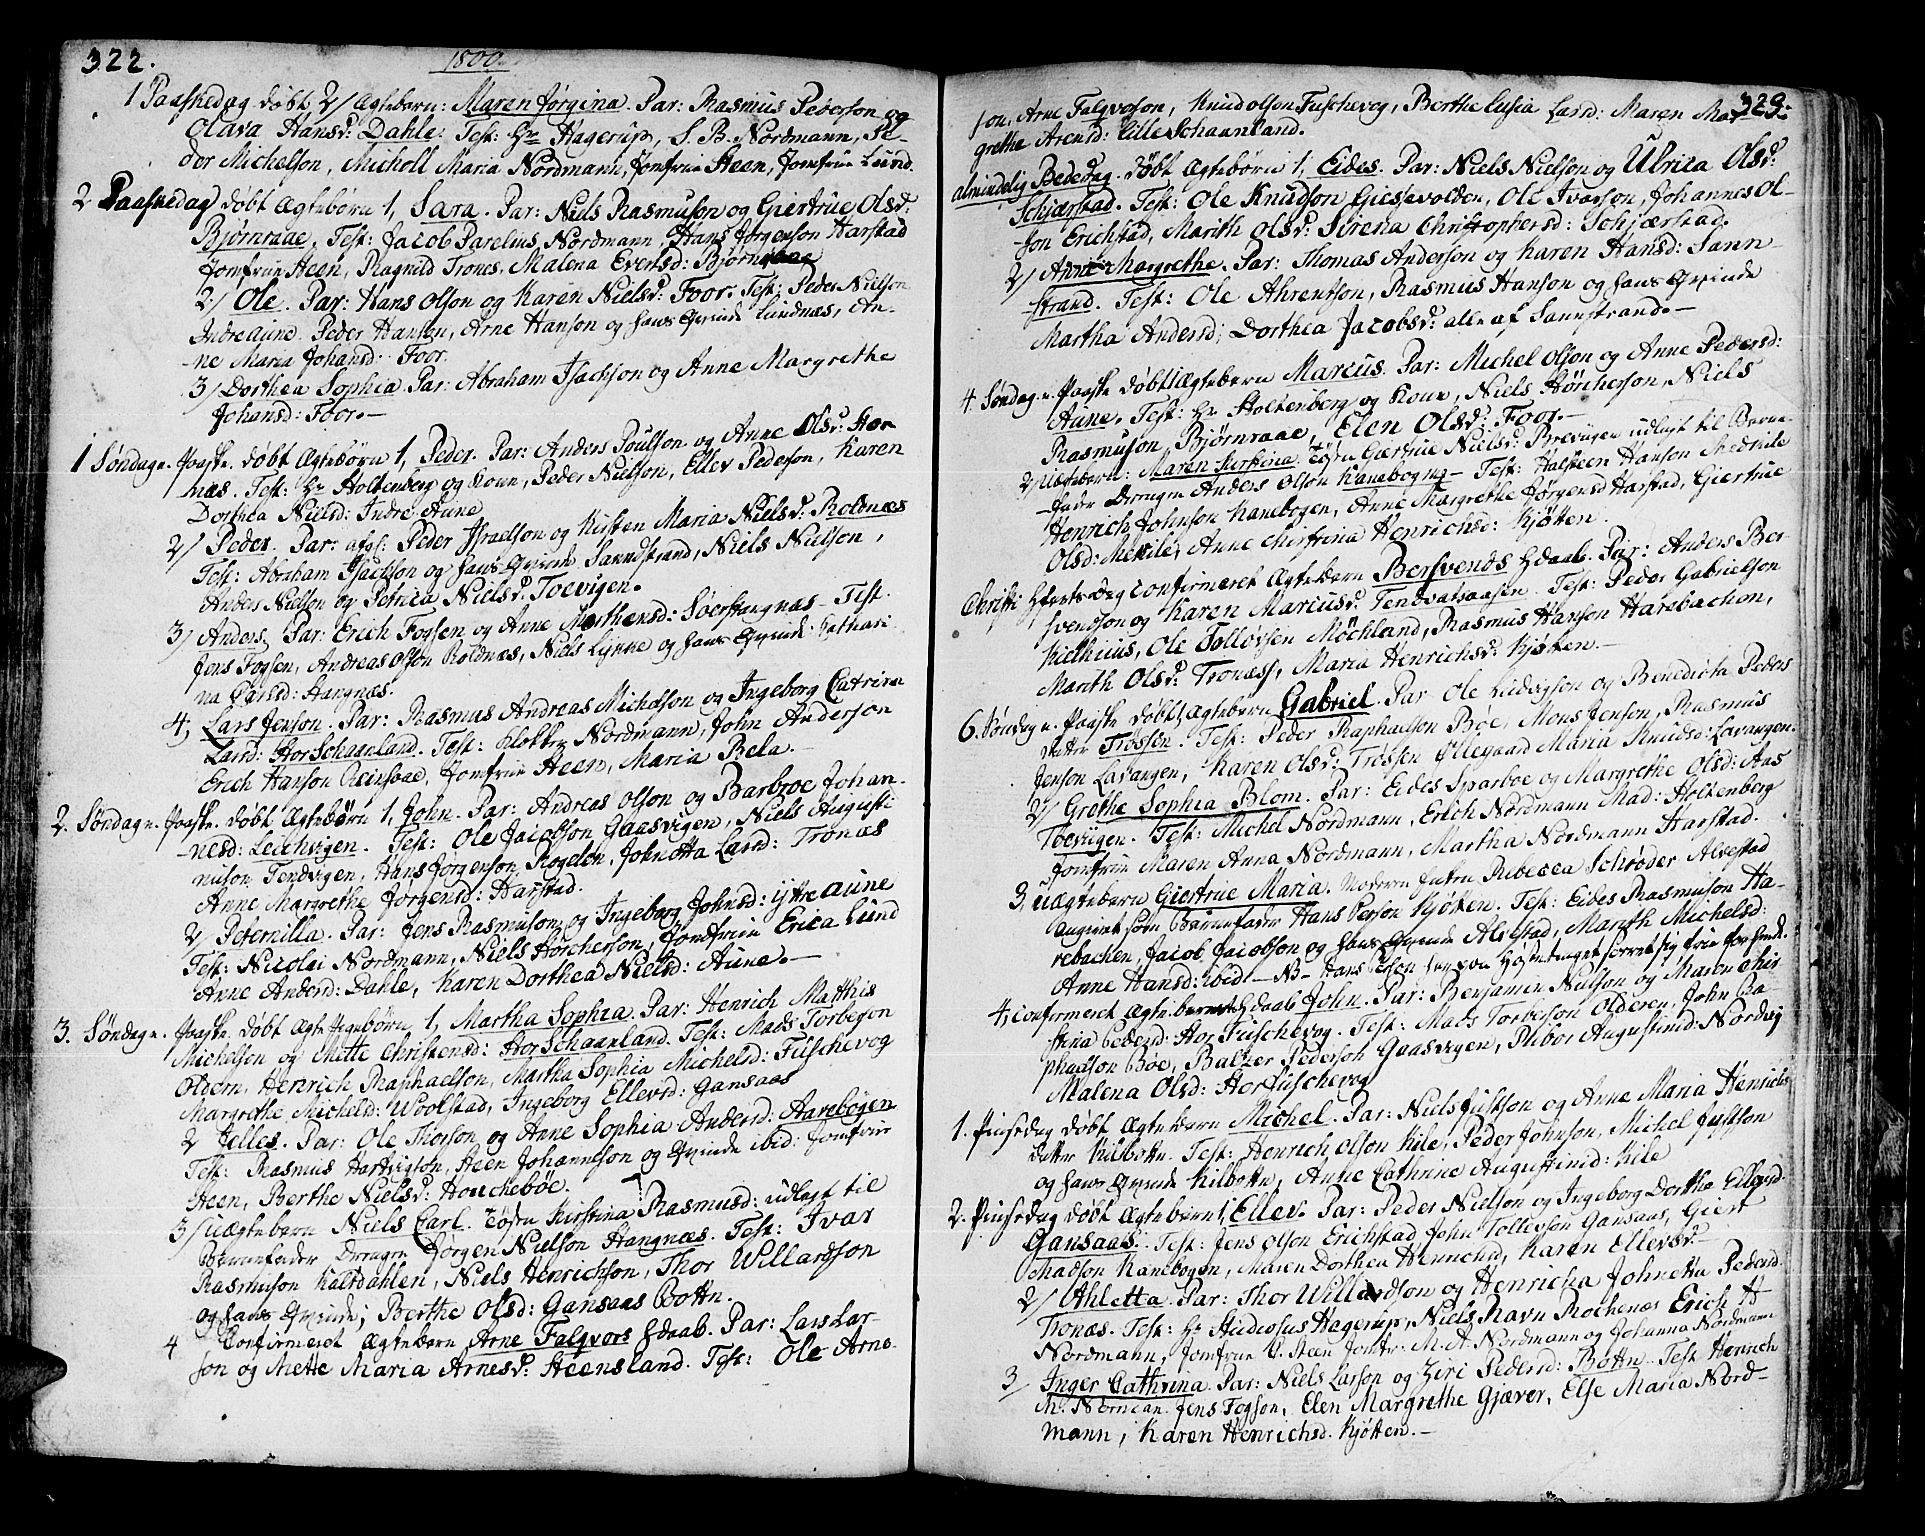 322.
1800.
1 Paaskedag døbt 2/ Ægtebørn: Maren Jørgina. Par: Rasmus Pederson og
Olava Hansd: Dahle. Test: Hr Hagerup, S. B. Nordmann, Pe-
der Michelson, Micholl Maria Nordmann, Jomfrue Heen, Jomfrue Lund.
2 Paaskedag døbt Ægtebørn 1, Sara. Par: Niels Rasmuson og Giertrue Olsd:
Bjørnraae, Test: Jacob Parelius Nordmann, Hans Jørgenson Harstad
Jomfrue Heen, Ragnild Trones, Malena Evertsd: Bjørnraae
2/ Ole. Par: Hans Olson og Karen Nielsd: Foor. Test: Peder Nielson
Indre Aune. Peder Hanson, Arne Hanson og hans Qvinde Lundnæs, An-
ne Maria Johansd: Foor.
3/ Dorthea Sophia. Par: Abraham Isachson og Anne Margrethe
Johansd: Foor.-
1 Søndag e. Paaske. døbt Ægtebørn 1, Peder. Par: Anders Poulson og Anne Olsd: Hor-
næs. Test: Hr Holtenberg og Kone, Peder Nielson, Ellev Pederson, Karen
Dorthea Nielsd: Indre Aune
2/ Peder. Par: afg: Peder Israelson og Kirsten Maria Nielsd: Roldnæs
Test: Abraham Isachson og hans Qvinde Sannstrand, Niels Nielson,
Anders Nielson og Petrica Nielsd: Toevigen.
3/ Anders. Par: Erich Fogsen og Anne Morthensd: Søerstangnæs- Test.
Jens Fogsen, Andreas Olson Roldnæs, Niels Lykke og hans Qvinde. Cathari-
na Larsd: Stangnæs.
4, Lars Jenson. Par: Rasmus Andreas Michelson og Ingeborg Catrina
Larsd: Hor Schaanland. Test: Klokker Nordmann, John Anderson
Erich Hanson Reinsaae, Jomfrue Heen, Maria Rela.-
2. Søndag e. Paaske. døbt Ægtebørn 1, John. Par: Andreas Olson og Barbroe Johan-
nesd: Leichvigen. Test: Ole Jacobson Gaasvigen, Niels Augusti-
nuson Tendvigen, Hans Jørgenson Rogeløn, Johnetta Larsd: Tronæs
Anne Margrethe Jørgensd: Harstad.
2/ Peternilla. Par: Jens Rasmuson og Ingeborg Johnsd: ijttre Aune
Test: Nicolai Nordmann, Niels Horcherson, Jomfrue Erica Lund
Anne Andersd: Dahle, Karen Dorthea Nielsd: Aune.-
3. Søndag e. Paaske. døbt Ægtebørn, 1, Martha Sophia. Par: Henrich Matthis
Michelson og Mette Christensd: Hor Schaanland. Test: Mads Torbegon
Oldern. Henrich Raphaelson, Martha Sophia Michelsd: Fuschevog
Margrethe Michelsd: Woolstad, Ingeborg Ellevsd: Gansaas
2 Jelles. Par: Ole Thorson og Anne Sophia Andersd: Aarebogen
Test: Rasmus Hartvigson, Steen Johannson og Qvinde ibid: Jomfrue
Heen, Berthe Nielsd: Houchebøe.
3/ Uægtebørn Niels Carl. Tøsen Kirstina Rasmusd: udlagt til
Barnefader Drengen Jørgen Nielson Hangnæs. Test: Ivar
Rasmuson Kaltdahlen, Niels Henrichson, Thor Willardson
og hans Qvinde; Berthe Olsd: Gansaas Bottn.
4 Confirmeret Ægtebørn Arne Falqvors hdaab. Par: Lars Lar-
son og Mette Maria Arnesd: Steensland. Test: Ole Arne-
323.
son, Arne Falqvoson, Knud Olson Fuschevog, Berthe Lusia Larsd: Maren Mar-
grethe Arensd: Lille Schaanland.
almindelig Bededag. døbt Ægtebørn 1, Eides. Par: Niels Nielson og Ulrica Olsd:
Schjærstad. Test: Ole Knudson Giesevolden, Ole Ivarson, Johannes Ol-
son Erichstad, Marith Olsd: Sirena Christophersd: Schjærstad.
2/ Anne Margrethe. Par: Thomas Anderson og Karen Hansd: Sann-
strand. Test: Ole Ahrentson, Rasmus Hanson og hans Qvinde
Martha Andersd; Dorthea Jacobsd: alle af Sannstrand.-
4. Søndag e. Paaske døbt 1 Ægtebørn Marcus. Par: Michel Olson og Anne Pedersd:
Aune. Test: Hr Holtenberg og Kone, Niels Horcherson, Niels
Rasmuson Bjørnraae, Elen Olsd: Foor.-
2/ Uægtebørn: Maren Kirstina. Tøsen Giertrue Nielsd: Brevigen udlagt til Barne-
fader Drengen Anders Olson Kanebogen- Test: Halsteen Hanson Medkile
Henrich Johnson Kanebogen, Anne Margrethe Jørgensd Harstad, Giertrue
Olsd: Medkile, Anne Kirstina Henrichsd: Kjøtten.
Christi Hfarts Dag confirmeret Ægtebørn Bersvends hdaab. Par: Anders Ber-
svendson og Karen Marcusd: Tendvatsaasen. Test: Peder Gabrielson
Kielhuus, Ole Tollovsen Møchland, Rasmus Hanson Harebachen,
Marith Olsd: Tronæss, Maria Henrichsd: Kjøtten.-
6. Søndag e. Paaske døbt Ægtebørn Gabriel. Par Ole Ludvigson og Benedicta Peders
datter Trøssen. Test: Peder Raphaelson Bøe, Mons Jenson, Rasmus
Jenson Lavangen, Karen Olsd: Trøssen Ollegaard Maria Knudsd: Lavangen.
2/ Grethe Sophia Blom. Par: Eides Sparboe og Margrethe Olsd: Aas
Toevigen. Test: Michel Nordmann, Erich Nordmann Mad: Holtenberg
Jomfrue Maren Anna Nordmann, Martha Nordmann Harstad.
3, Uægtebørn Giertrue Maria. Moderen Enken Rebecca Schrøder Alvestad
angivet som Barnefader Hans Person Kjøtten. Test: Eides Rasmuson Ha-
rebachen, Jacob Jacobson og hans Qvinde Alvestad, Marith Michelsd:
Anne Hansd: ibid- NB- Hans Person har paa Høstetinget svoret sig frie for hende.
4, confirmeret Ægtebørnets hdaab John. Par: Benjamin Nielson og Maren Chir-
stina Peders: Hor Fuschevog. Test: Mads Torbison Olderen, John Ra-
phaelson Bøe, Baltzer Pederson Gaasvigen, Plibor Augustinid: Nordvig
Malena Olsd: Hor Fuschevog
1. Pinsedag døbt Ægtebørn Michel. Par: Niels Justson og Anne Maria Henrichs
datter Kilbottn. Test: Henrich Olson Kile, Peder Johnson, Michel Justson
og hans Qvinde Kilbottn, Anne Cathrine Augustinid: Kile
2. Pinsedag døbt Ægtebørn 1, Ellev. Par: Peder Nielson og Ingeborg Dorthe Ellevsd:
Gansaas. Test: Jens Olson Erichstad John Tollevson Gansaas, Giert
Madson Kanebogen, Maren Dorthea Hennichsd, Karen Ellevsd:
2/ Ahletta. Par: Thor Willardson og Henricka Johnetta Pedersd
Tronæs. Test: Hr Hudiosus Hagerup, Niels Ravn Rochenæs Erich H
Nordmann, Jomfrue U. Heen Jomfr: M. A. Nordmann og Johanna Nordmann
3/ Inger Cathrina. Par: Niels Larson og Ziri Pedersd: Bottn. Test Henrich
M. Normann. Jens Fogson, Elen Margrethe Gjæver, Else Maria Nord-
mann, Karen Henrichsd. Kjøtten.-